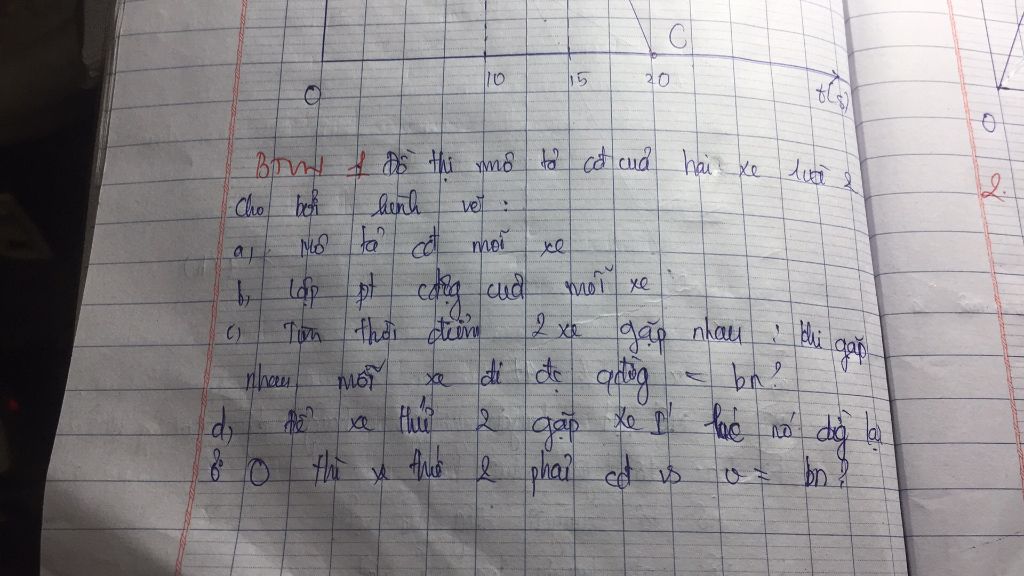 C
10 15 20
O t(s)
BTVN 1 Đồ thị mô tả cđ của hai xe
cho bởi hình vẽ :
a, Mô tả cđ mỗi xe
b, Lập pt cđộg của mỗi xe
c, Tìm thời điểm 2 xe gặp nhau ; khi gặp
nhau mỗi xe đi đc qđờg = bn?
d, Để xe thứ 2 gặp xe I lúc nó dừg lại
ở O thì xe thứ 2 phải cđ vs v = bn?
O
2.